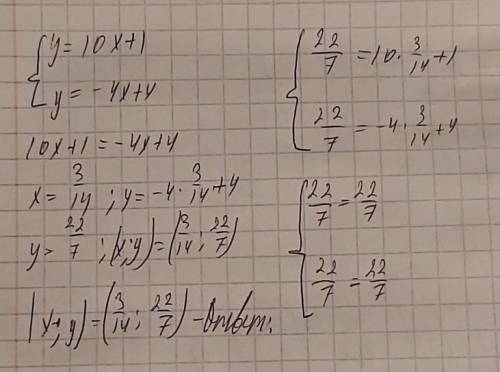 { y = 10x+1
y = -4x+4
10x+1 = -4x+4
x = 3/14 ; y = -4 · 3/14 + 4
y = 22/7 ; (x; y) = (3/14 ; 22/7)
(x; y) = (3/14 ; 22/7) - ответ.
{ 22/7 = 10 · 3/14 + 1
22/7 = -4 · 3/14 + 4
{ 22/7 = 22/7
22/7 = 22/7